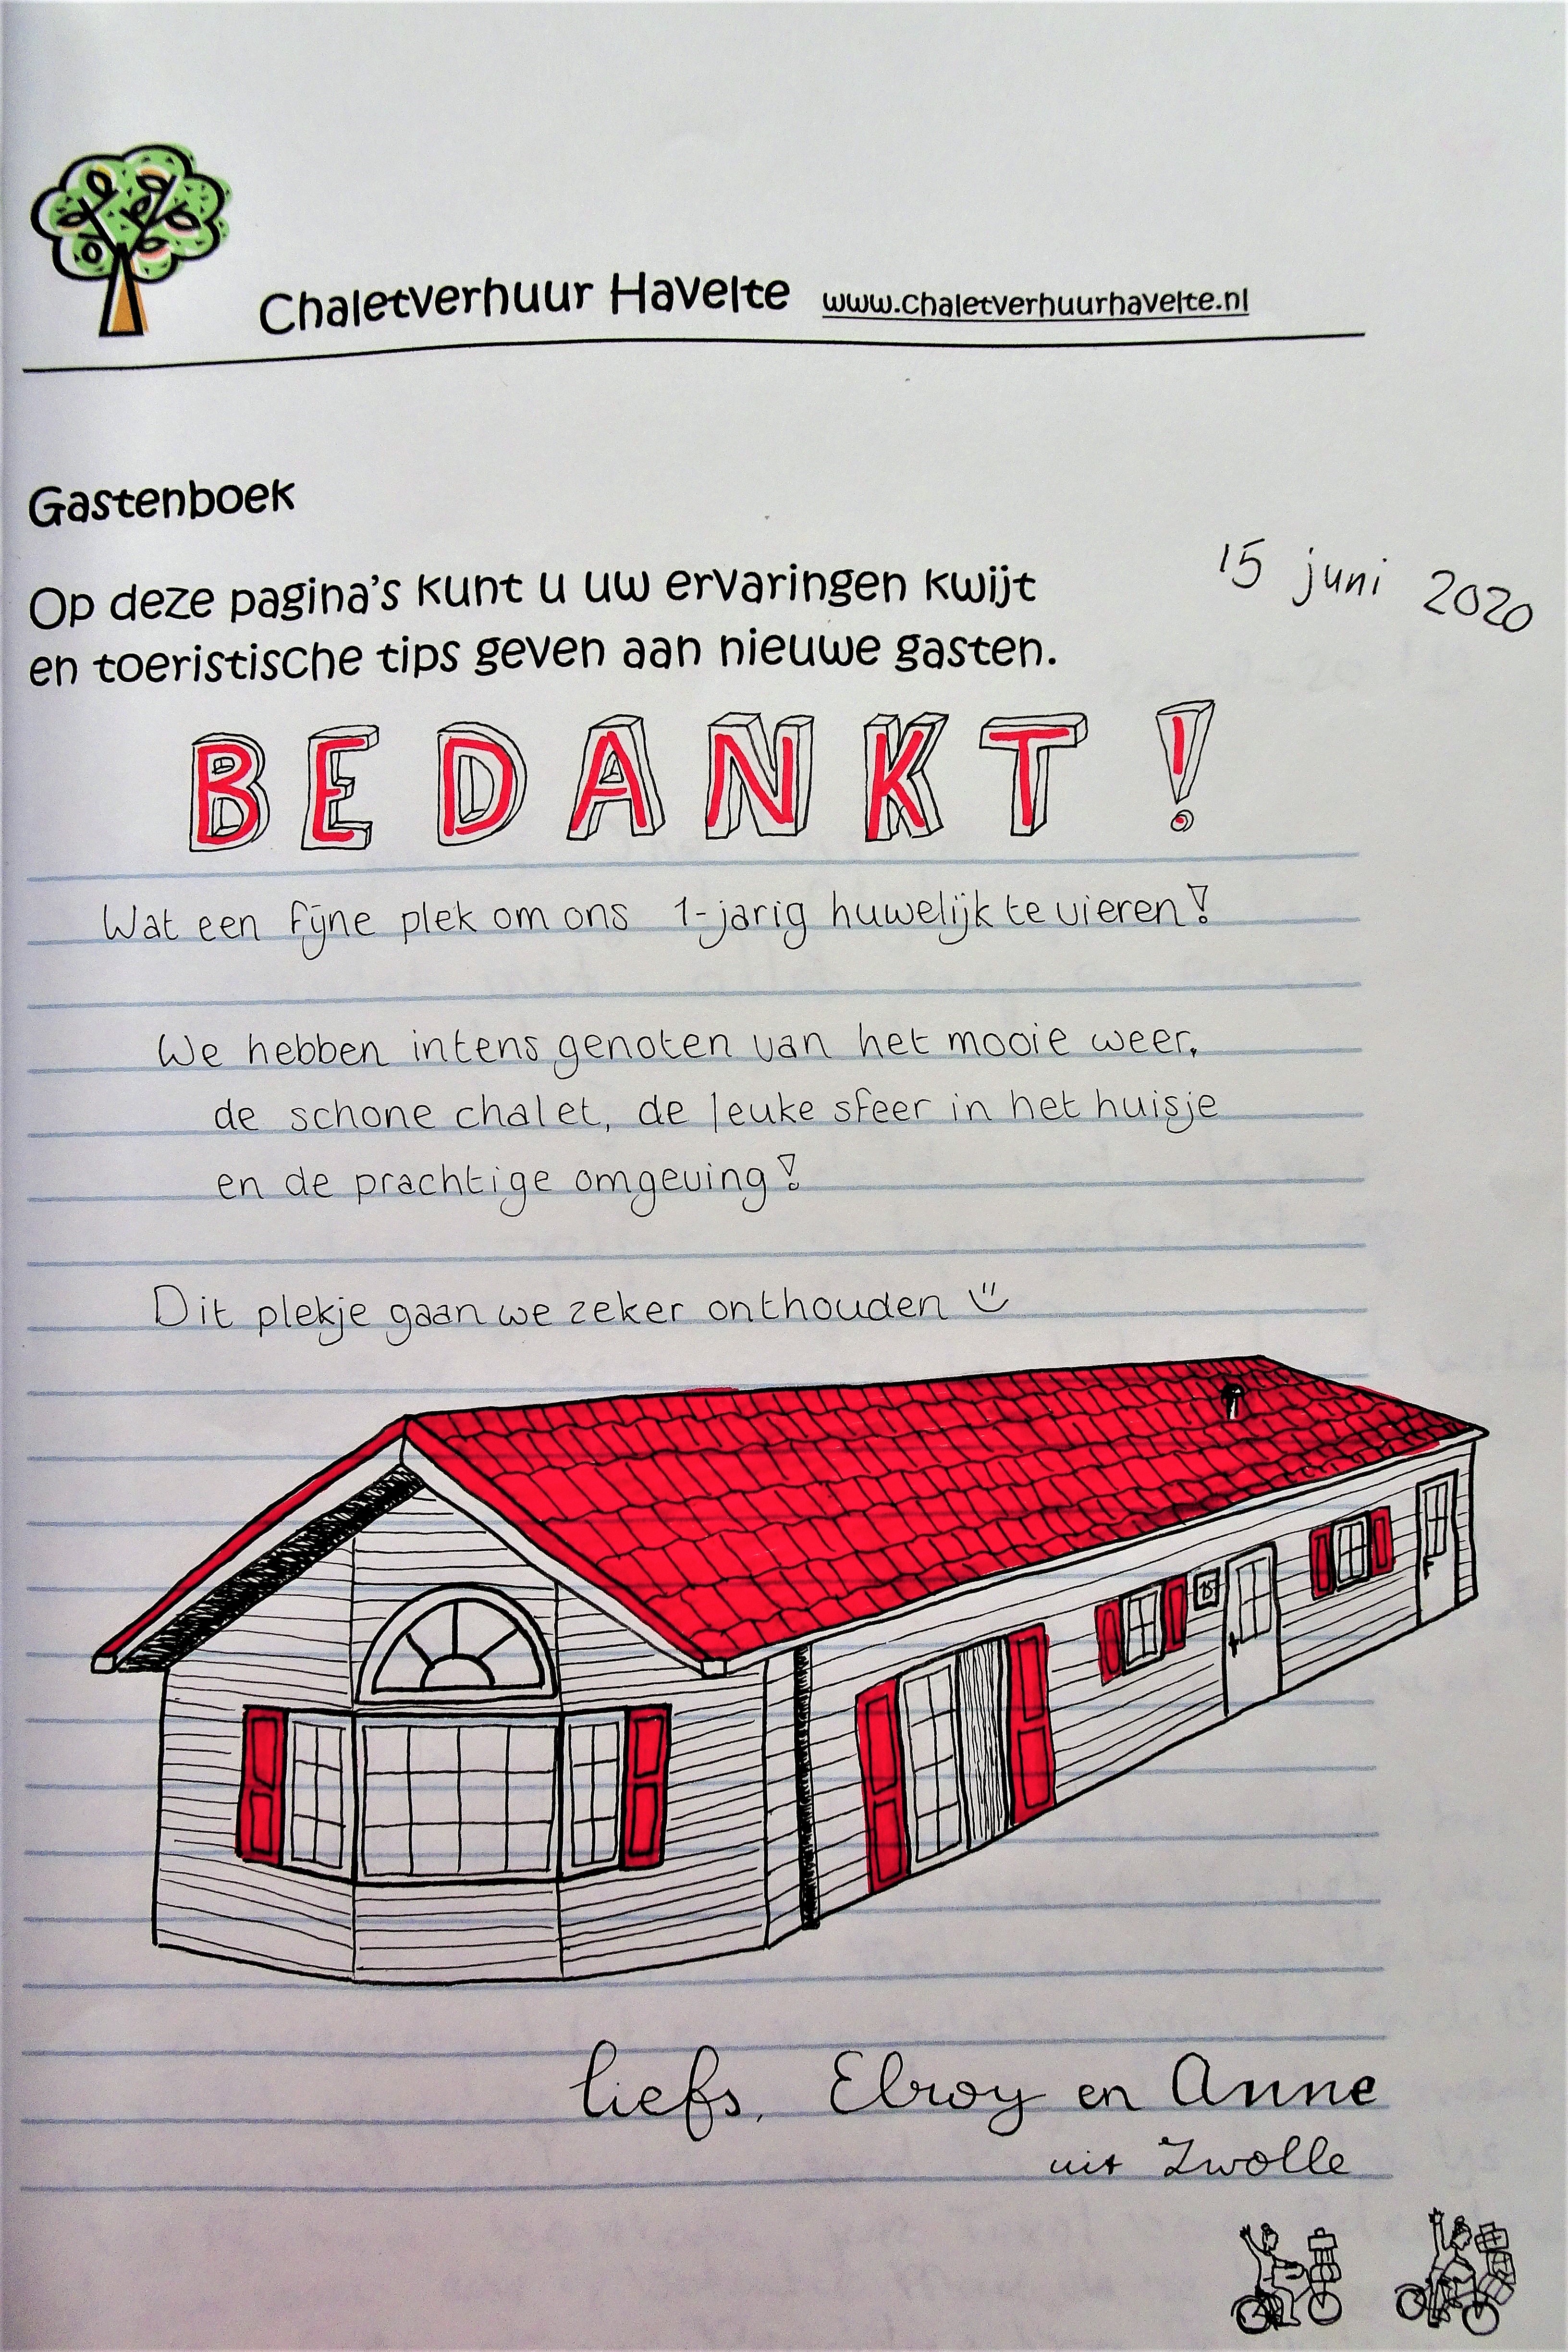 Chaletverhuur Havelte www.chaletverhuurhavelte.nl
Gastenboek
15 juni 2020
Op deze pagina's kunt u uw ervaringen kwijt
en toeristische tips geven aan nieuwe gasten.
BEDANKT!
Wat een fijne plek om ons 1-jarig huwelijk te vieren!
We hebben intens genoten van het mooie weer,
de schone chalet, de leuke sfeer in het huisje
en de prachtige omgeving!
Dit plekje gaan we zeker onthouden
25
liefs, Elroy en Anne
uit Zwolle